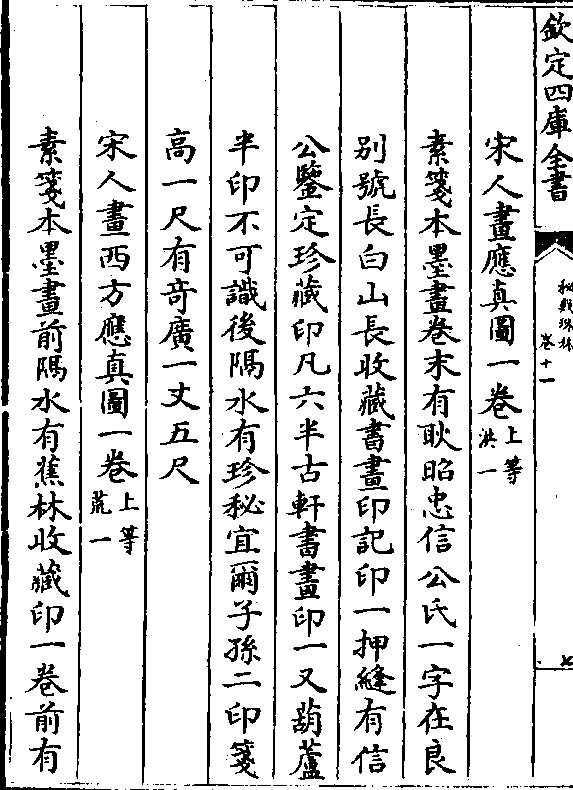 欽定四庫全書
秘殿珠林
卷十一
七
宋人畫應真圖一卷上等洪一
素箋本墨畫卷末有耿昭忠信公氏一字在良
別號長白山長收藏書畫印記印一押縫有信
公鑒定珍藏印凡六半古軒書畫印一又葫蘆
半印不可識後隔水有珍秘宜爾子孫二印箋
高一尺有奇廣一丈五尺
宋人畫西方應真圖一卷上等荒一
素箋本墨畫前隔水有蕉林收藏印一卷前有